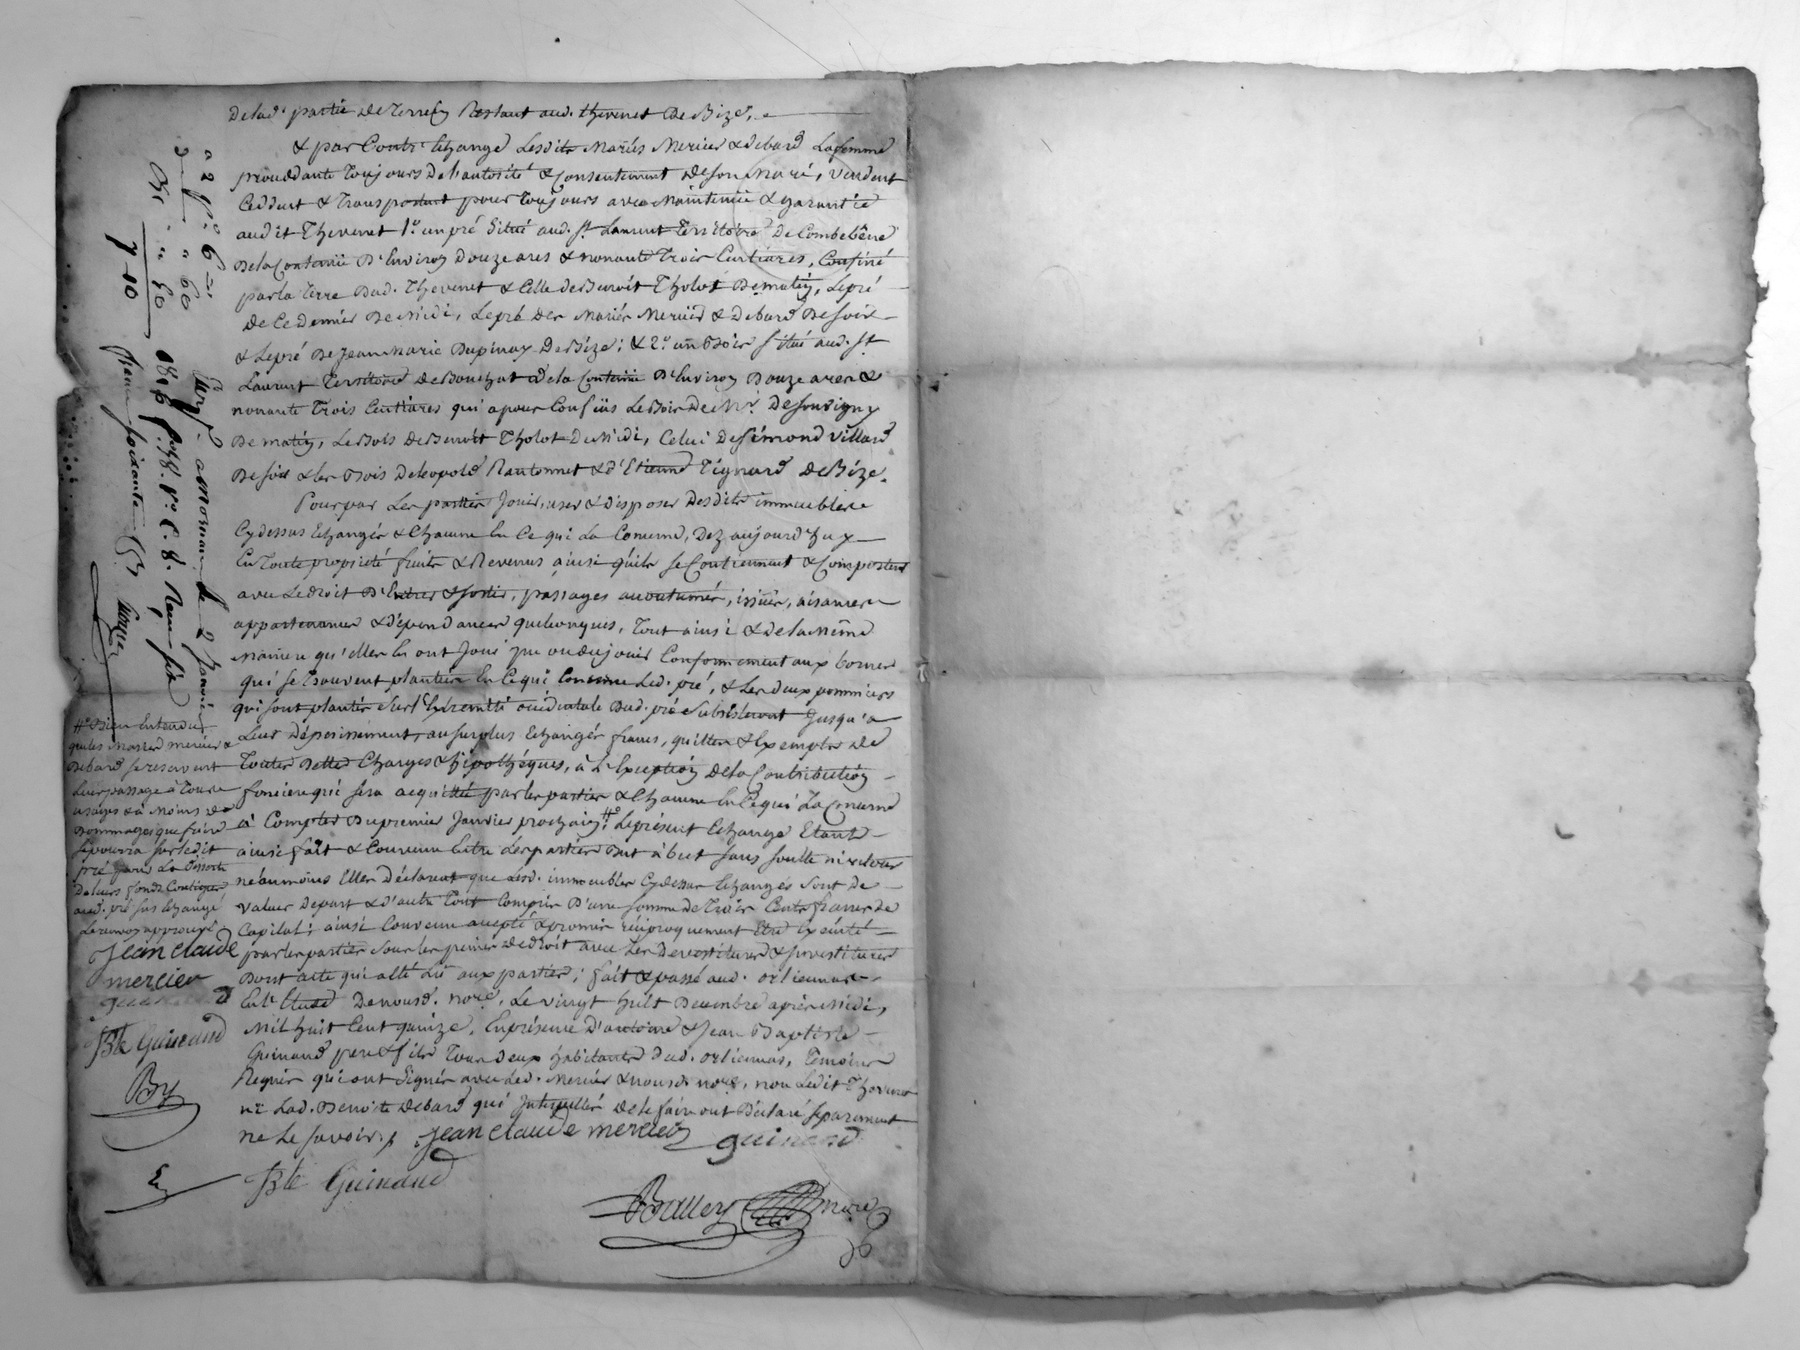 Delad. partie de Terrein Restant aud. thevenet De Bize.
& par Contr'Echange Lesdits Mariés Mercier & debard La femme
procedante Toujours de l'autorité & Consentement De son Mari, vendent
Ceddent & Transportent pour Toujours avec Maintenüe & garantie
audit Thevenet 1.º un pré Situé aud. St. Laurent Territoire De Combebêne
De la Contenüe D'Environ Douze ares & nonante Trois Centiares, Confiné
par la Terre Dud. Thevenet & Celle de Benoit Tholot De matin, Le pré
De Ce dernier De Midi, Le pré des Mariés Mercier & Debard De soir
& Le pré De Jean Marie Dupinay De Bize; & 2.º un Bois situé aud. St.
Laurent Territoire De Bouchat De la Contenüe D'Environ Douze ares &
nonante Trois Centiares qui a pour Confins Le Bois De Mr. De souvigny
De matin, Le Bois De Benoit Tholot De Midi, Celui De Simond villard
De soir & les Bois De Leopold Nantonnet & d'Etienne Tignard De Bize.
Pour par Les parties Jouir, user & disposer Desdits immeubles
Cydessus Echangés & Chacune En Ce qui La Concerne, Dez aujourd'huy
En Toute propriété fruits & Revenus ainsi qu'ils se Contiennent & Comportent
avec Le droit D'Entrées & sorties, passages accoutumés, issües, aisances
appartenances & dépendances quelconques, Tout ainsi & de la Même
Maniere qu'elles En ont Joui pu ou du jouir Conformement aux bornes
qui se Trouvent plantées En Ce qui Concerne Led. pré, & Les deux pommiers
qui sont plantés sur l'Extremité occidentale Dud. pré subsisteront Jusqu'a
Leur Déperissement, au surplus Echangés francs, quittes & Exempts De
Toutes Dettes Charges & hipothéques, à L'Exception De la Contribution
fonciere qui sera acquittée par les parties & Chacune En Ce qui La Concerne
à Compter Du premier Janvier prochain. # Le présent Echange Etant
ainsi fait & Convenu Entre Les parties But à but sans soulte ni retour
néanmoins Elles Déclarent que Lesd. immeubles Cydessus Echangés sont de
valeur De part & d'autre Tout Compris D'une somme De Trois Cents francs de
Capital; ainsi Convenu accepté & promis réciproquement Etre Exécuté
par les parties sous les peines De droit avec Les Devestitures & Investitures
Dont acte qui a été Lû aux parties; fait & passé aud. ordiennas
En l'Etude De nousd. nore., Le vingt huit Decembre après Midi,
Mil huit Cent quinze, En présence d'antoine & Jean Baptiste
Guinand pere & fils Tous Deux habitants Dud. ordiennas, Temoins
Requis qui ont Signés avec Led. Mercier & nousd. nore., non Ledit Thevenet
ni Lad. Benoite Debard qui Interpellés de Le faire ont Déclaré separement
ne Le savoir.
Jean claude mercier guinand
Bte Guinand
Balley nore
# Bien Entendu
que les Mariés Mercier &
Debard se reservent
Leur passage à Tous
usages & à Moins de
Dommages que faire
se pourra sur Ledit
pré pour La Desserte
De leurs fonds Contigus
aud. pré sus Echangé
Le renvoy approuvé
Jean claude
mercier
guinand
Bte Guinand
By
Enregé. a Mornant le 2 Janvier
1816 fº. 78. Vº. C. 8. Reçu six
francs soixante
a 2 p. % 6 "
" 60
Dr " " 60
7 20